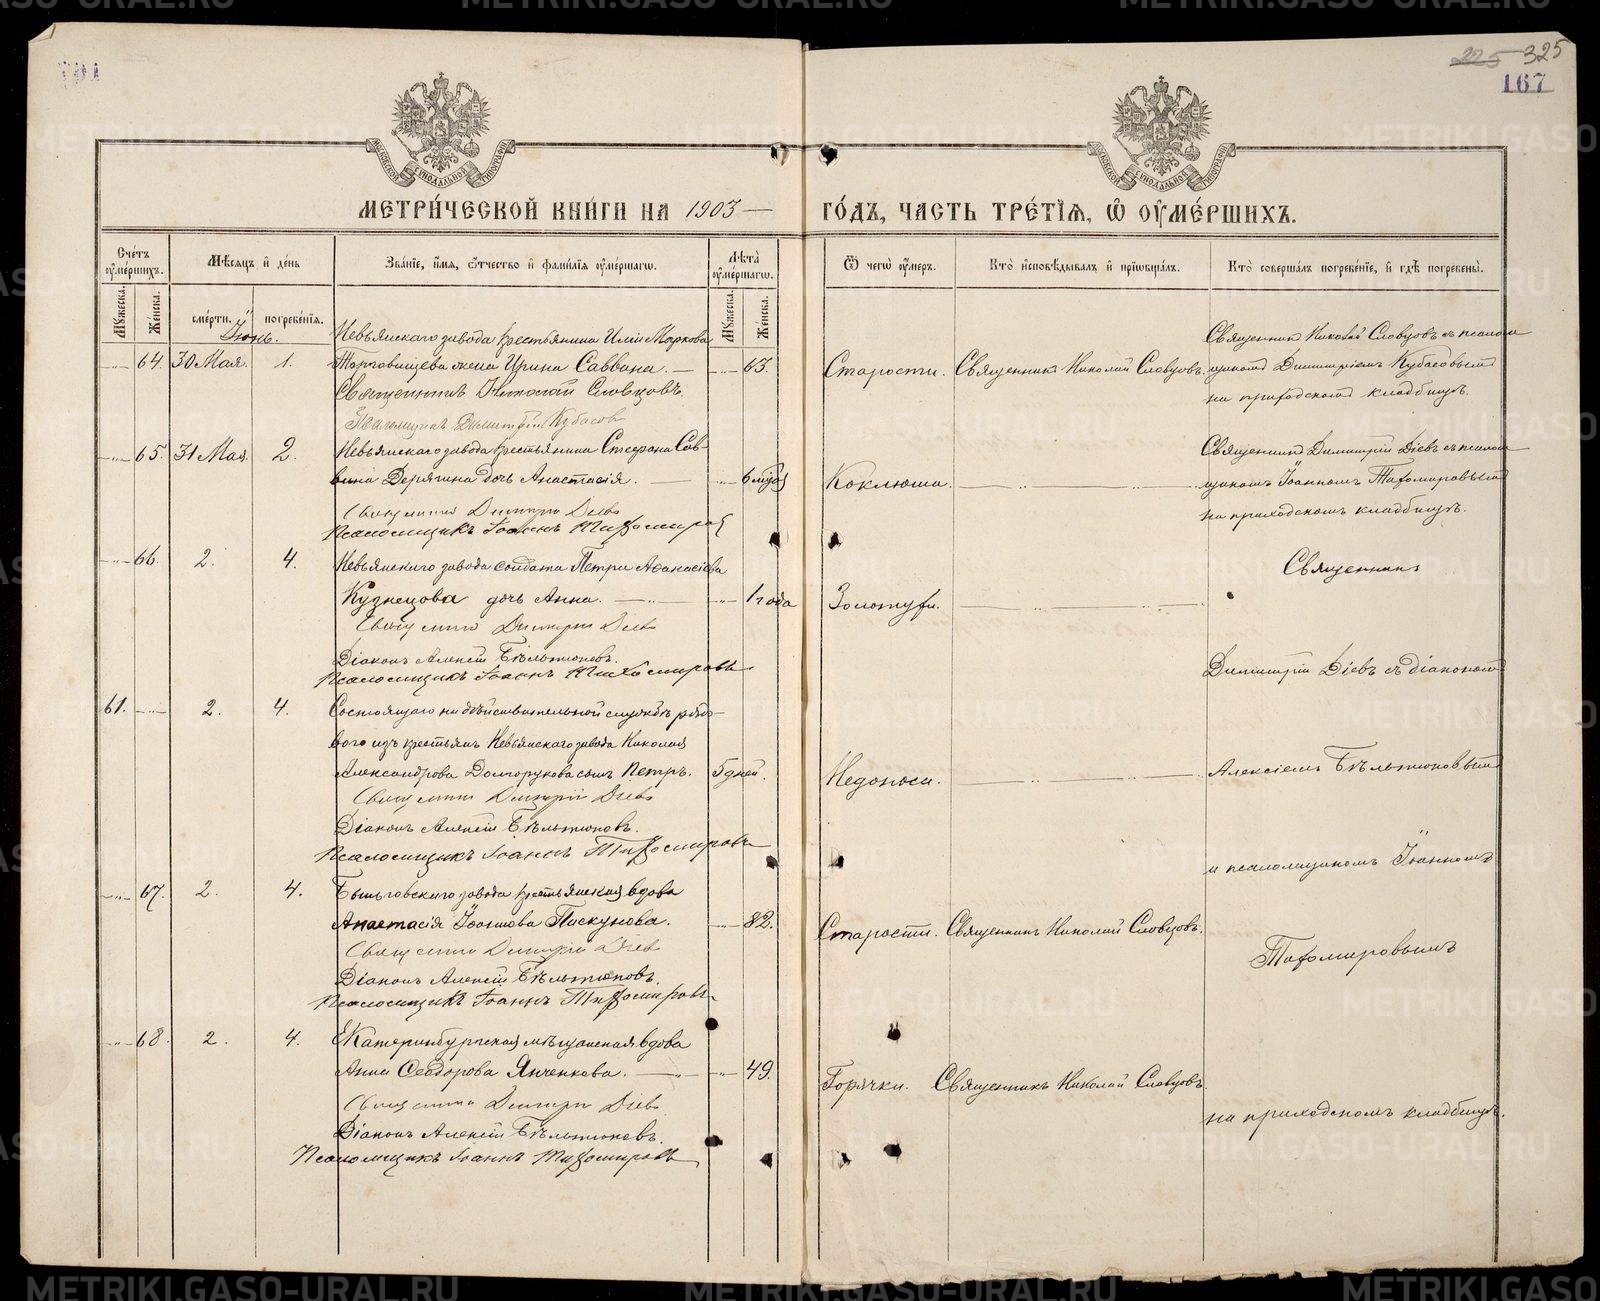 225 325
167
МЕТРИ́ЧЕСКОЙ КНИ́ГИ НА 1903 — ГО́ДЪ, ЧАСТЬ ТРЕ́ТІѦ, Ѿ ОУМЕ́РШИХЪ.
Счетъ оумершихъ.
Мужеска.
Женска.
Мѣсяцъ и день
смерти.
погребенія.
Званіе, имя, отчество и фамилія оумершагѡ.
Лѣта оумершагѡ.
Мужеска.
Женска.
Ѿ чегѡ оумеръ.
Кто исповѣдывалъ и пріѡбщалъ.
Кто совершалъ погребеніе, и гдѣ погребены.
Іюнь.
64. 30 Мая. 1. Невьянскаго завода крестьянина Иліи Маркова
Торговищева жена Ирина Саввина. — 63. Старости. Священникъ Николай Словцовъ.
Священникъ Николай Словцовъ съ псалом-
щикомъ Димитріемъ Кубасовымъ
на приходскомъ кладбищѣ.
Священникъ Николай Словцовъ
Псаломщикъ Димитрій Кубасовъ
65. 31 Мая. 2. Невьянскаго завода крестьянина Стефана Сав-
вина Дерягина дочь Анастасія. — 6 Коклюша.
Священникъ Димитрій Діевъ съ псалом-
щикомъ Іоанномъ Тихомировымъ
на приходскомъ кладбищѣ.
Священникъ Димитрій Діевъ
Псаломщикъ Іоаннъ Тихомировъ
66. 2. 4. Невьянскаго завода солдата Петра Аѳанасіева
Кузнецова дочь Анна. — 1 года Золотухи.
Священникъ Димитрій Діевъ
Діаконъ Алексій Бѣльтюковъ.
Псаломщикъ Іоаннъ Тихомировъ
61. 2. 4. Состоящаго на дѣйствительной службѣ рядо-
вого изъ крестьянъ Невьянскаго завода Николая
Александрова Долгорукова сынъ Петръ. 5 дней. Недоноси.
Священникъ Димитрій Діевъ
Діаконъ Алексій Бѣльтюковъ.
Псаломщикъ Іоаннъ Тихомировъ
67. 2. 4. Быньговскаго завода крестьянская вдова
Анастасія Іоаннова Пискунова. — 82. Старости. Священникъ Николай Словцовъ.
Священникъ Димитрій Діевъ
Діаконъ Алексій Бѣльтюковъ.
Псаломщикъ Іоаннъ Тихомировъ
68. 2. 4. Екатеринбургская мѣщанская вдова
Анна Ѳеодорова Янченкова. — 49. Горячки. Священникъ Николай Словцовъ.
Священникъ Димитрій Діевъ
Діаконъ Алексій Бѣльтюковъ.
Псаломщикъ Іоаннъ Тихомировъ
Священникъ
Димитрій Діевъ съ діакономъ
Алексіемъ Бѣльтюковымъ
и псаломщикомъ Іоанномъ
Тихомировымъ
на приходскомъ кладбищѣ.
METRIKI.GASO-URAL.RU